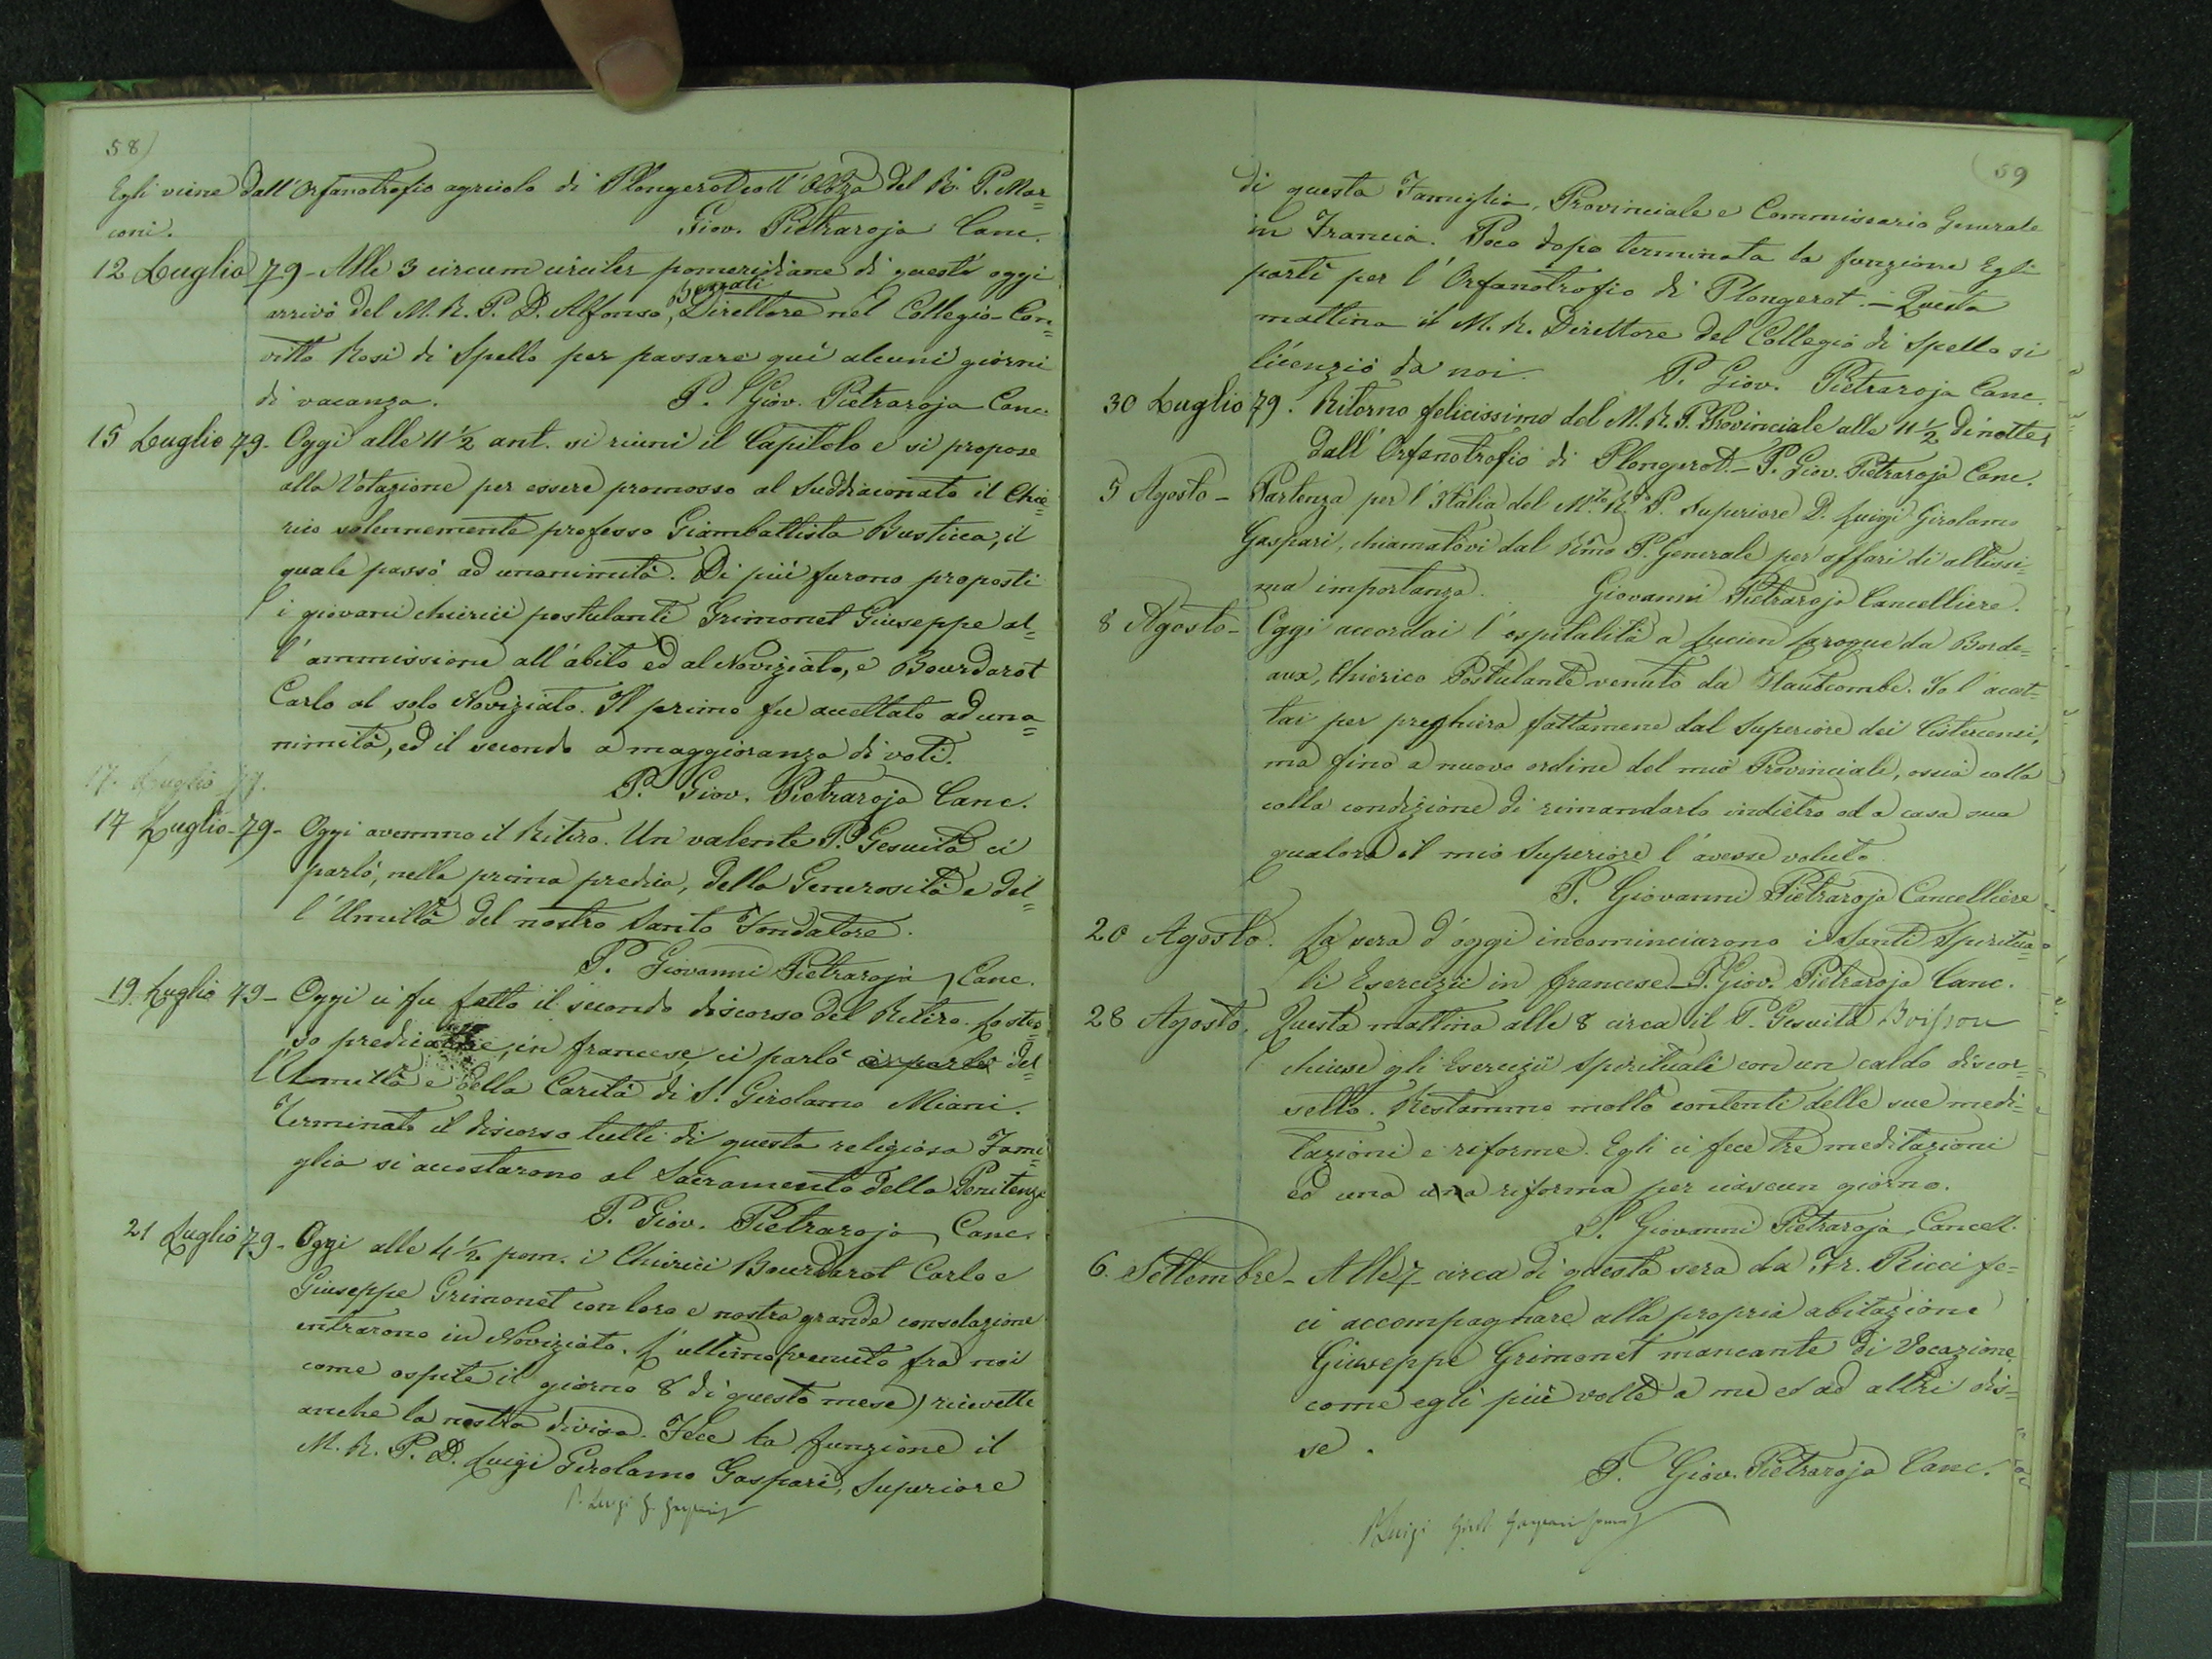 58)
Egli viene dall'Orfanotrofio agricolo di Plongerot coll' Obbza del R. P. Mar=
coni. Giov. Pietraroja Canc.
12 Luglio 79 - Alle 3 circum circiter pomeridiane di questi oggi
Benati
arrivò del M. R. P. D. Alfonso, Direttore nel Collegio-Con=
vitto Rosi di Spello per passare quì alcuni giorni
di vacanza. P. Giov. Pietraroja Canc.
15 Luglio 79. Oggi alle 11 1/2 ant. si riunì il Capitolo e si propose
alla Votazione per essere promosso al Suddiaconato il Chie=
rico solennemente professo Giambattista Bustica, il
quale passò ad unanimità. Di più furono proposti
i giovani chierici postulanti Grimonet Giuseppe al=
l'ammissione all'abito ed al Noviziato, e Bourdarot
Carlo al solo Noviziato. Il primo fu accettato ad una=
nimità, ed il secondo a maggioranza di voti.
17. Luglio 79.
P. Giov. Pietraroja Canc.
17 Luglio-79- Oggi avemmo il Ritiro. Un valente P. Gesuita ci
parlò, nella prima predica, della Generosità e del=
l'Umiltà del nostro Santo Fondatore.
P. Giovanni Pietraroja, Canc.
19. Luglio 79 - Oggi ci fu fatto il secondo discorso del Ritiro. Lo stes=
so predicatore, in francese, ci parlò ci parlò del=
l'Umiltà e della Carità di S. Girolamo Miani.
Terminato il discorso tutti di questa religiosa Fami=
glia si accostarono al Sacramento della Penitenza
P. Giov. Pietraroja, Canc.
21 Luglio 79. Oggi alle 4 1/2 pom. i Chierici Bourdarot Carlo e
Giuseppe Grimonet con loro e nostra grande consolazione
entrarono in Noviziato. L'ultimo (venuto fra noi
come ospite il giorno 8 di questo mese) ricevette
anche la nostra divisa. Fece la funzione il
M. R. P. D. Luigi Girolamo Gaspari, Superiore
P. Luigi G. Gaspari
(59
di questa Famiglia, Provinciale e Commissario Generale
in Francia. Poco dopo terminata la funzione Egli
partì per l'Orfanotrofio di Plongerot. - Questa
mattina il M. R. Direttore del Collegio di Spello si
licenziò da noi. P. Giov. Pietraroja Canc.
30 Luglio 79. Ritorno felicissimo del M. R. P. Provinciale alle 11 1/2 di notte,
dall'Orfanotrofio di Plongerot. - P. Giov. Pietraroja Canc.
5 Agosto - Partenza per l'Italia del M.to R.do P. Superiore D. Luigi Girolamo
Gaspari, chiamatovi dal Rmo P. Generale per affari di altissi=
ma importanza. Giovanni Pietraroja Cancelliere.
8 Agosto - Oggi accordai l'ospitalità a Lucien Laroque da Borde=
aux, Chierico Postulante venuto da Hautcombe. Io l'accet=
tai per preghiera fattamene dal Superiore dei Cistercensi,
ma fino a nuovo ordine del mio Provinciale, ossia colla
colla condizione di rimandarlo indietro od a casa sua
qualora il mio Superiore l'avesse voluto.
P. Giovanni Pietraroja Cancelliere
20 Agosto. La sera d'oggi incominciarono i Santi Spiritua=
li Esercizii in francese. - P. Giov. Pietraroja Canc.
28 Agosto. Questa mattina alle 8 circa il P. Gesuita Boisson
chiuse gli Esercizii Spirituali con un caldo discor=
setto. Restammo molto contenti delle sue medi=
tazioni e riforme. Egli ci fece tre meditazioni
ed una una riforma per ciascun giorno.
P. Giovanni Pietraroja, Cancell.
6. Settembre - Alle 7 circa di questa sera da Fr. Ricci fe=
ci accompagnare alla propria abitazione
Giuseppe Grimonet mancante di Vocazione
come egli più volte a me ed ad altri dis=
se.
P. Giov. Pietraroja Canc.
P. Luigi Girol. Gaspari